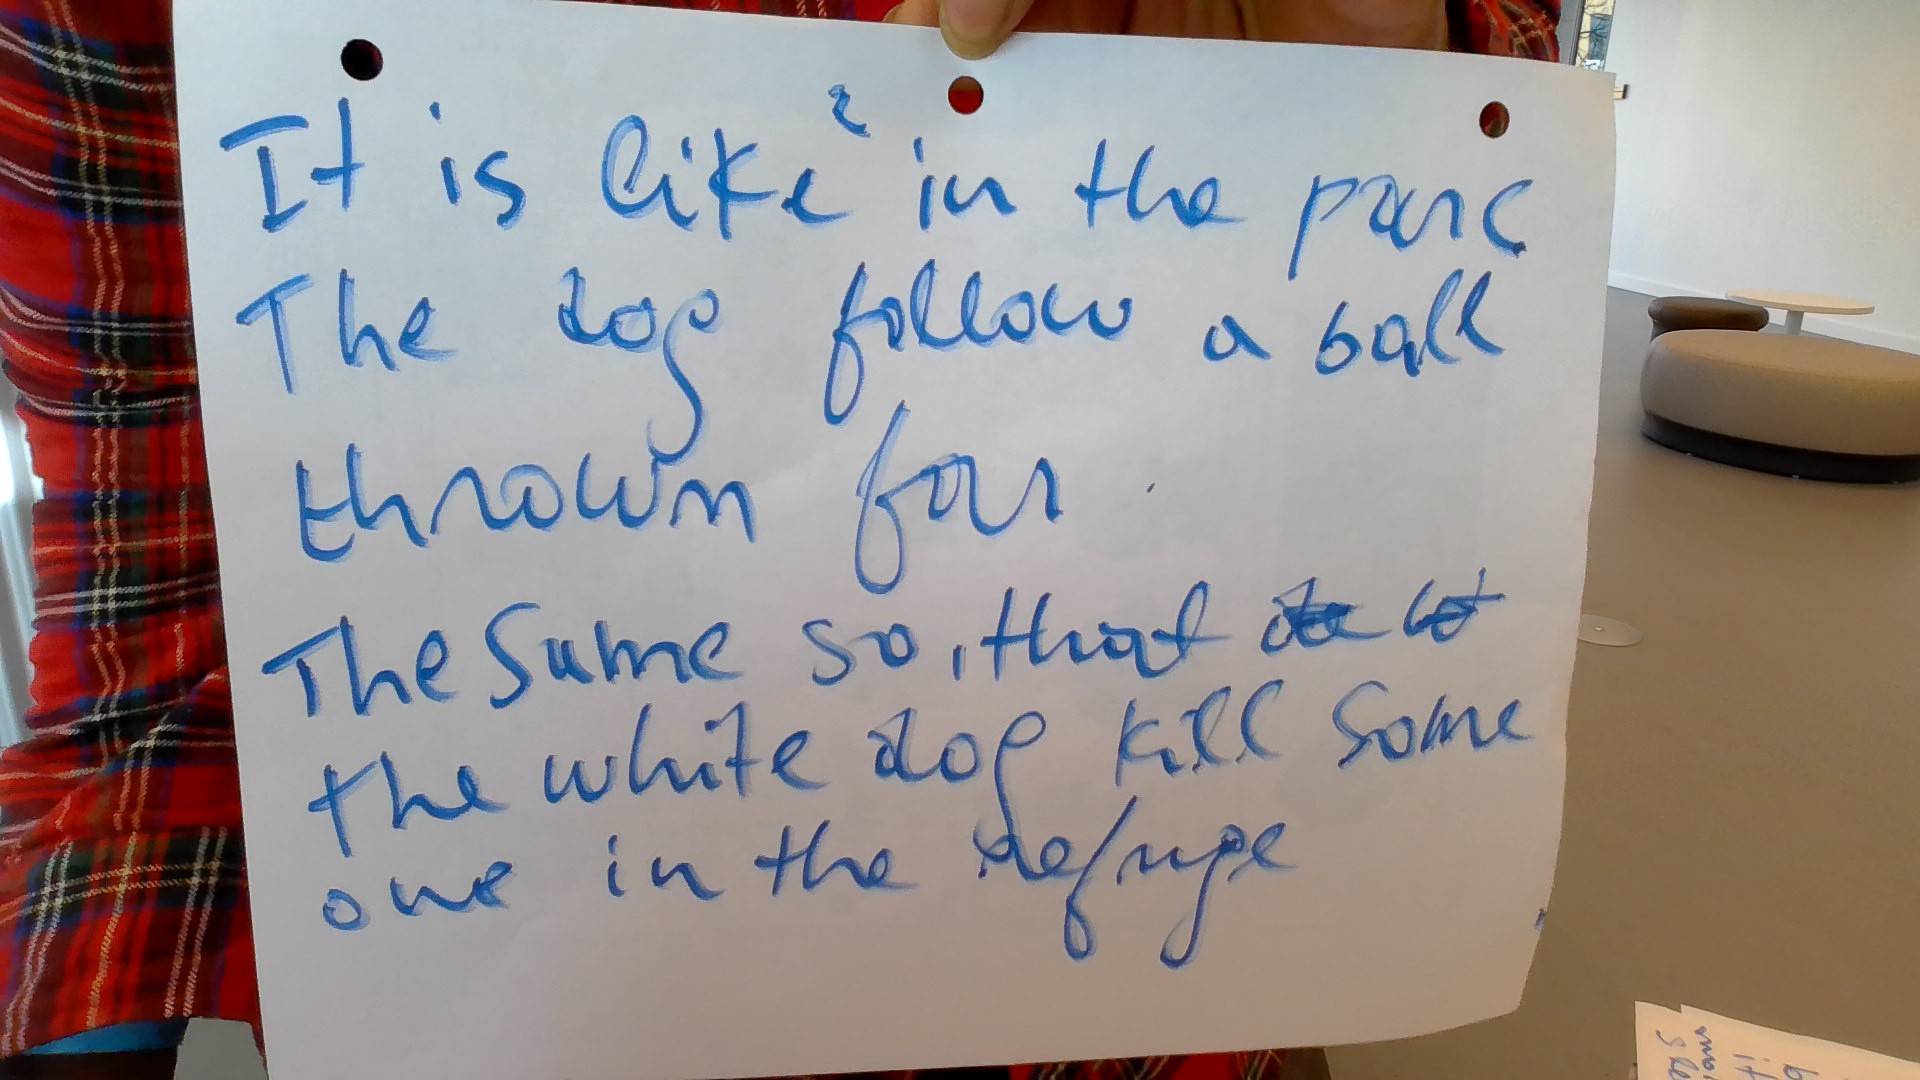 It is like 2 in the parc
The dog follow a ball
thrown far.
The Same so, that
the white dog kill some
one in the refuge